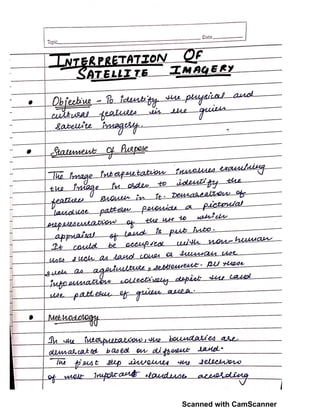 Topic
Date
INTERPRETATION OF
SATELLITE IMAGERY
Objective - To identify the physical and
cultural features in the given
satellite imagery.
Statement Of Purpose
The Image Interpretation involves examining
the image in order to identify the
features shown in it. Demarcation of
landuse pattern provide a pictorial
representation of the use to which
appraisal of land is put into.
It could be occupied with non-human
uses such as land cover or human use
such as agriculture, settlement. All these
information collectively depict the land
use pattern of given area.
Methodology
In the interpretation, the boundaries are
demarcated based on different land.
The first step involves the selection
of most important landuse according
Scanned with CamScanner